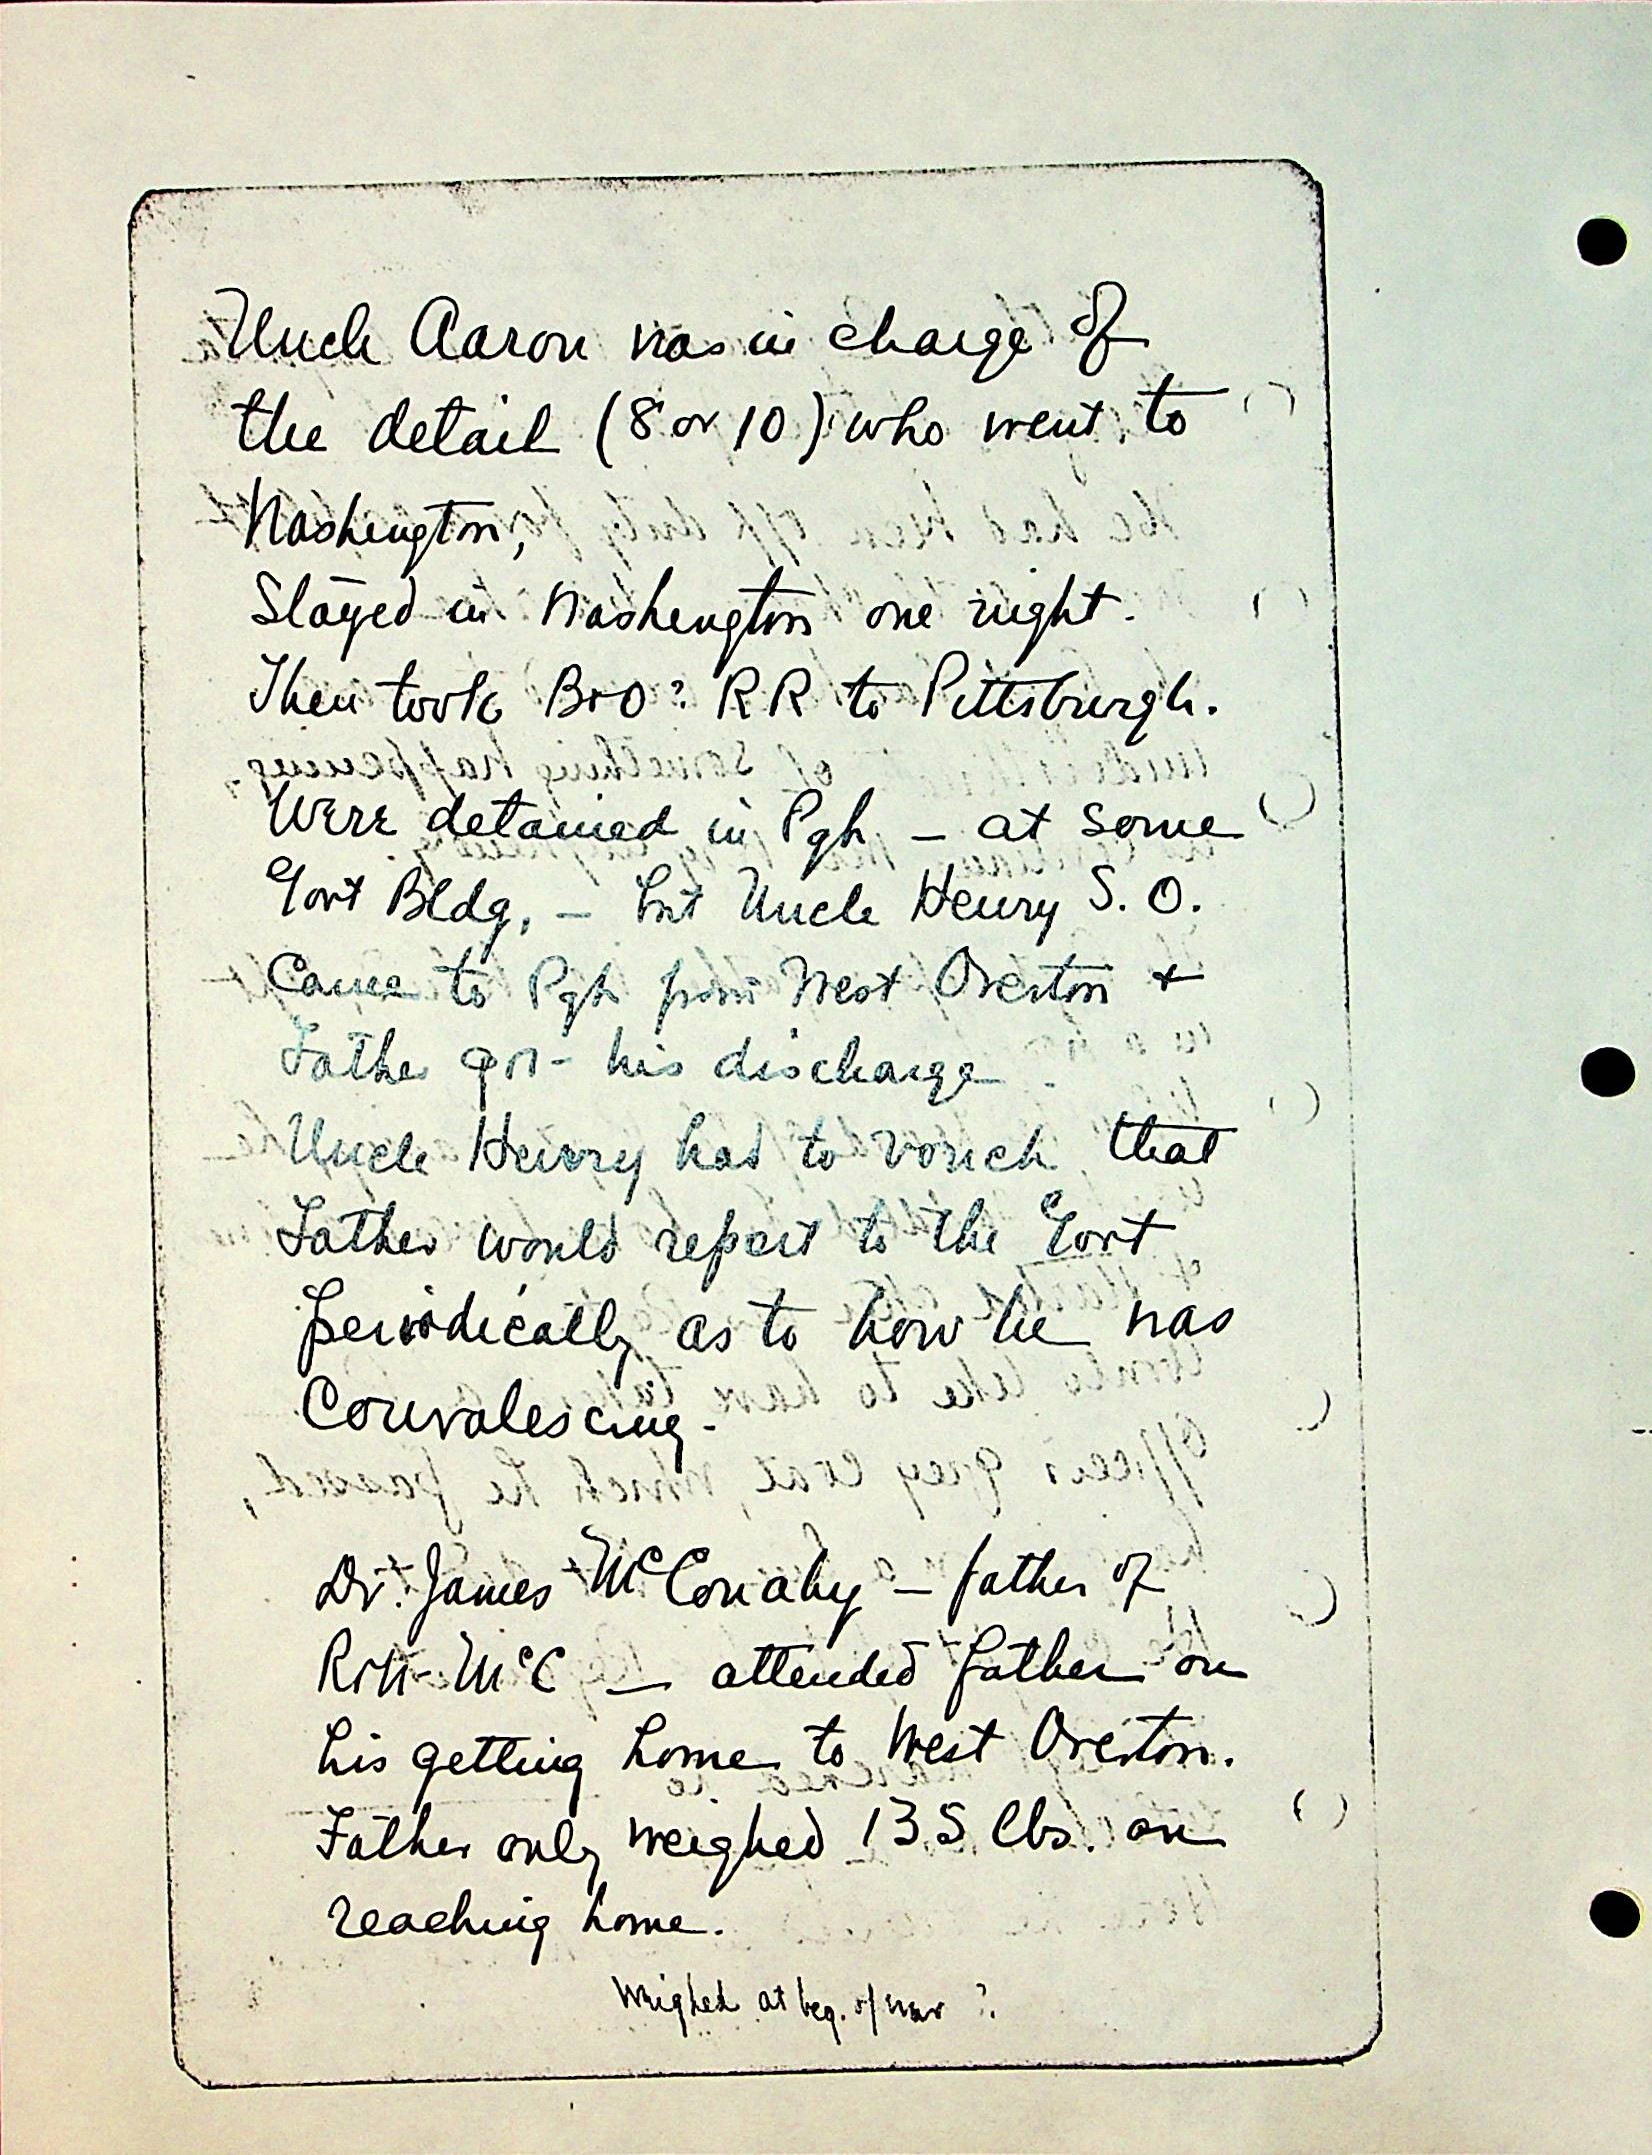 Uncle Aaron was in charge of
the detail (8 or 10) who went to
Washington,
Stayed in Washington one night.
Then took B+O? RR to Pittsburgh.
Were detained in Pgh - at some
Govt Bldg, - but Uncle Henry S. O.
Came to Pgh from West Overton +
Father got his discharge.
Uncle Henry had to vouch that
Father would report to the Govt
periodically as to how he was
Convalescing.
Dr. James McConahy - father of
Robt McC - attended father on
his getting home to West Overton.
Father only weighed 135 lbs. on
reaching home.
Weighed at beg. of war ?